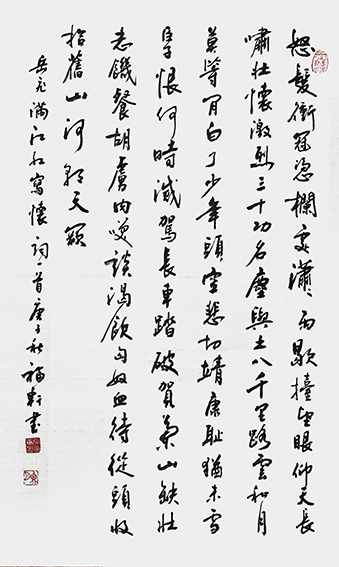 怒髮衝冠憑欄處瀟〻雨歇擡望眼仰天長
嘯壯懷激烈三十功名塵與土八千里路雲和月
莫等閒白了少年頭空悲切靖康恥猶未雪
臣子恨何時滅駕長車踏破賀蘭山缺壯
志饑餐胡虜肉笑談渴飲匈奴血待從頭收
拾舊山河朝天闕
岳飛滿江紅寫懷詞一首庚子秋福軒書